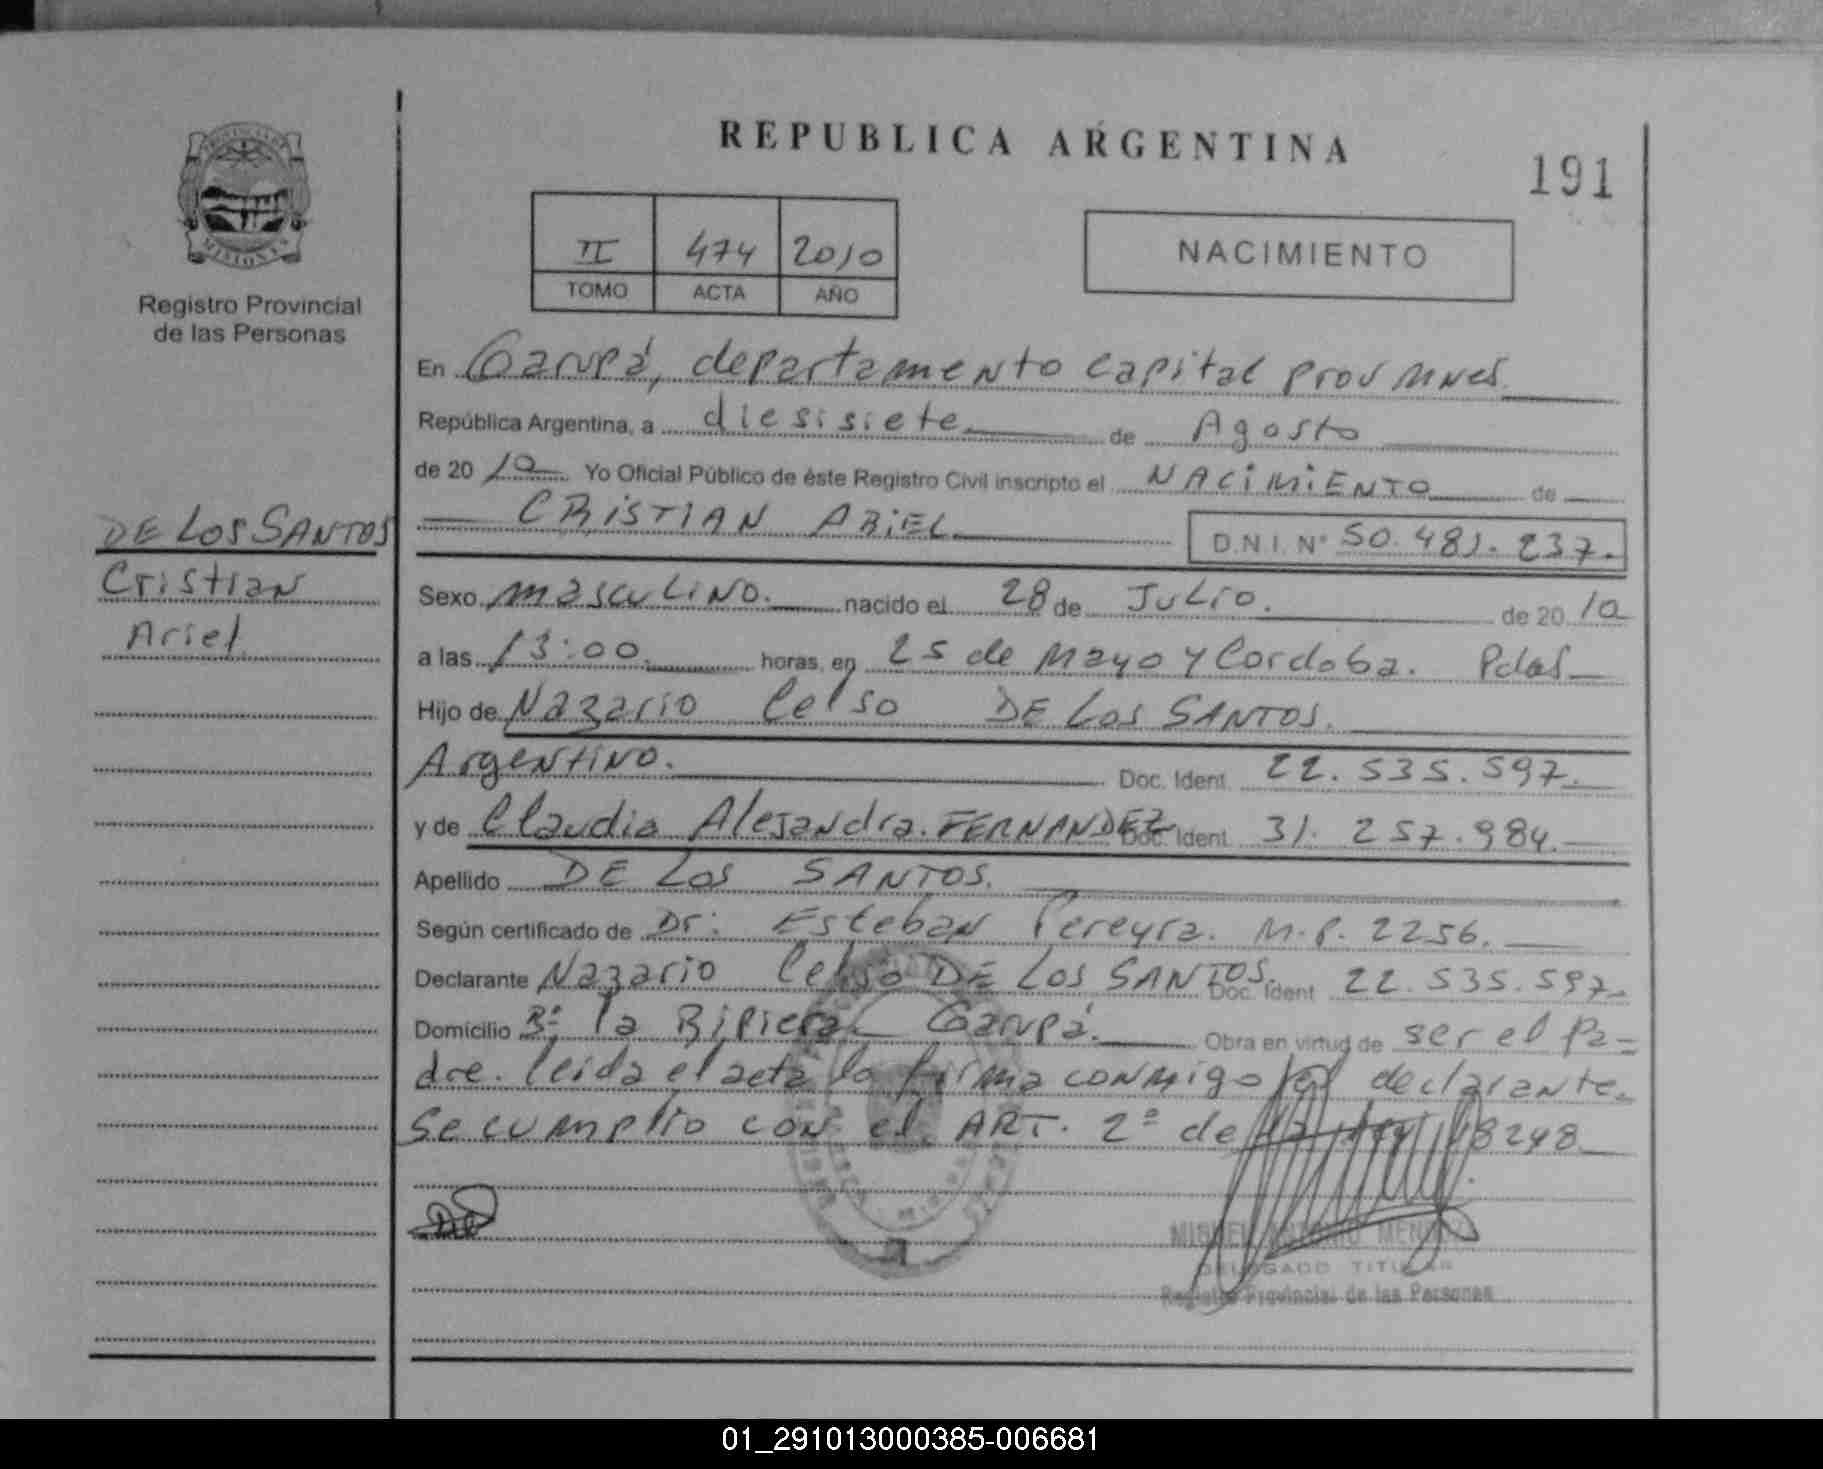 REPUBLICA ARGENTINA
191
PROVINCIA DE
MISIONES
Registro Provincial
de las Personas
II 474 2010
TOMO ACTA AÑO
NACIMIENTO
En Garupá, departamento Capital prov Mnes.
República Argentina, a diesisiete de Agosto
de 20 10 Yo Oficial Público de éste Registro Civil inscripto el NACIMIENTO de
CRISTIAN ARIEL D.N.I. Nº 50.481.237.
DE LOS SANTOS
Cristian
Ariel
Sexo masculino. nacido el 28 de Julio. de 20 10
a las 13:00 horas, en 25 de Mayo y Cordoba. Pdas
Hijo de Nazario Celso DE LOS SANTOS.
Argentino. Doc. Ident. 22.535.597.
y de Claudia Alejandra FERNANDEZ Doc. Ident. 31.257.984.
Apellido DE LOS SANTOS.
Según certificado de Dr: Esteban Pereyra. M.P. 2256.
Declarante Nazario Celso DE LOS SANTOS. Doc. Ident. 22.535.597.
Domicilio Bº la Ripiera Garupá. Obra en virtud de ser el Pa=
dre. leida el acta la firma conmigo el declarante.
Se cumplio con el ART. 2º de la ley 18248.
MIGUEL ANTONIO MENDEZ
DELEGADO TITULAR
Registro Provincial de las Personas
01_291013000385-006681